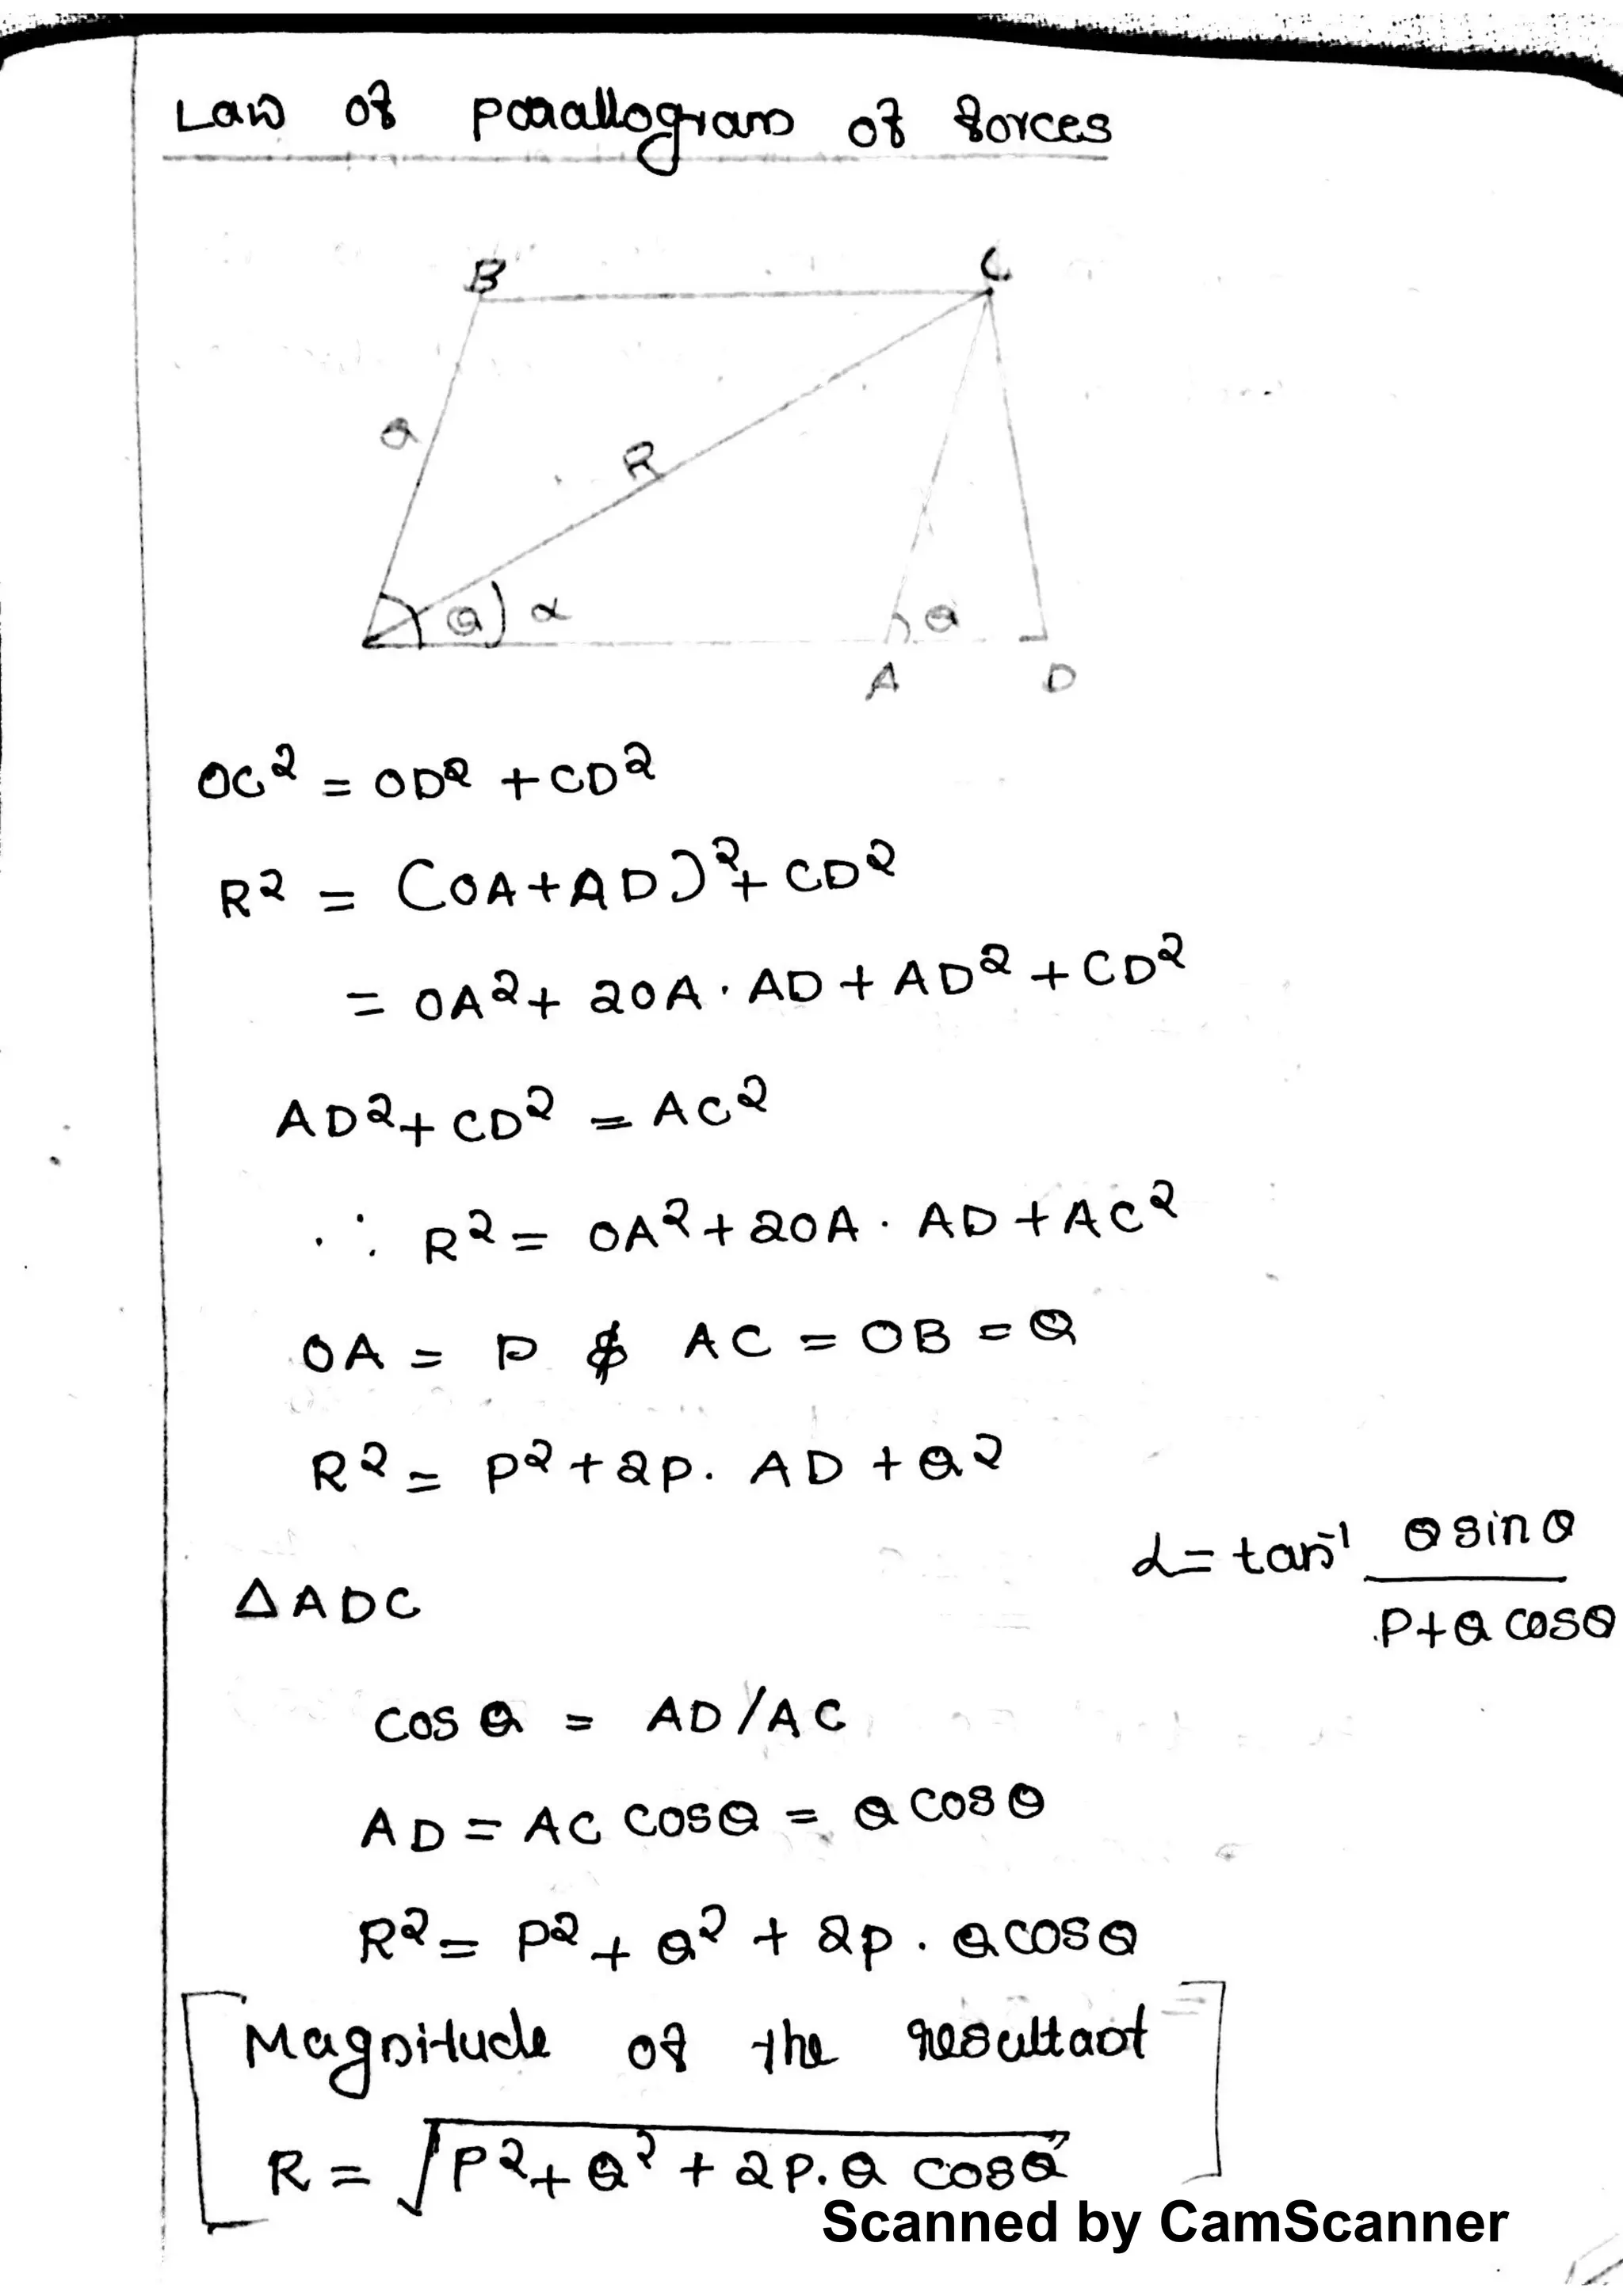 Law of parallogram of forces
B C
Q
R
θ α θ
A D
OC² = OD² + CD²
R² = (OA+AD)² + CD²
= OA² + 2OA · AD + AD² + CD²
AD² + CD² = AC²
∴ R² = OA² + 2OA · AD + AC²
OA = P & AC = OB = Q
R² = P² + 2P · AD + Q²
α = tan⁻¹ Q sin θ / P + Q cos θ
Δ ADC
cos θ = AD/AC
AD = AC cos θ = Q cos θ
R² = P² + Q² + 2P · Q cos θ
Magnitude of the resultant
R = √P² + Q² + 2P.Q cos θ
Scanned by CamScanner